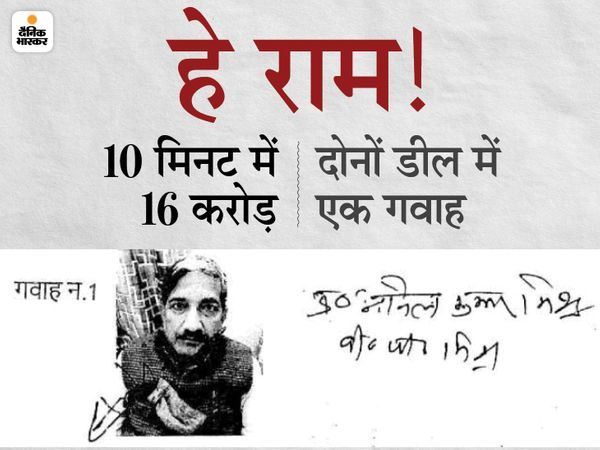 दैनिक
भास्कर
हे राम!
10 मिनट में
16 करोड़
दोनों डील में
एक गवाह
गवाह न.1
अनिल कुमार मिश्र